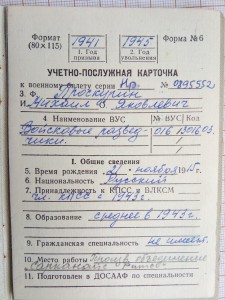 Формат 1941 1945 Форма №6
(80×115) 1. Год призыва 2. Год увольнения
УЧЕТНО-ПОСЛУЖНАЯ КАРТОЧКА
к военному билету серии НР №
3. Ф. Проскурин
И Михаил О. Яковлевич
4 Наименование ВУС № ВУС
Войсковые развед-
чики.
I. Общие сведения
5. Время рождения 21 ноября 1915г.
6. Национальность Русский
7. Принадлежность к КПСС и ВЛКСМ
чл. КПСС с 1943г.
8. Образование среднее в
9. Гражданская специальность не имеет.
10. Место работы
11. Подготовлен в ДОСААФ по специальности